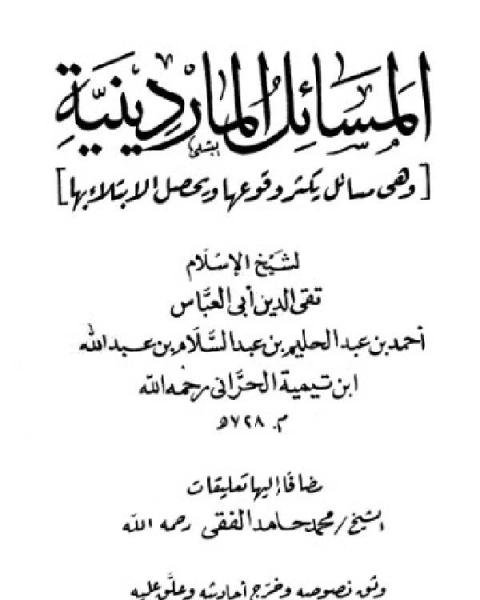 المَسَائِل المارْدِينيَّة
[وهى مسائل يكثر وقوعها ويحصل الابتلاء بها]
لشَيْخ الإسْلَام
تقى الدين أبى العبَّاس
أحمد بن عبد الحليم بن عبد السَّلَام بن عبد الله
ابن تيمية الحرَّانى رحمه الله
م. ٧٢٨ هـ
مضافًا إليها تعليقات
الشيخ/ محمد حامد الفقى رحمه الله
وثق نصوصه وخرّج أحاديثه وعلّق عليه